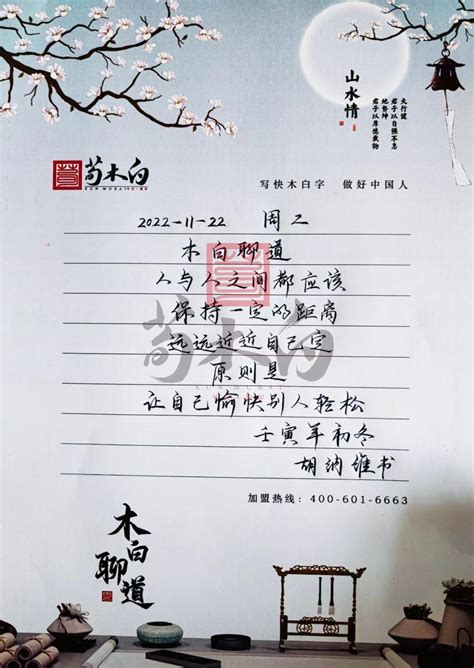 山水情
天行健
君子以自强不息
地势坤
君子以厚德载物
荀木白
XUN MUBAI
写快木白字 做好中国人
2022-11-22 周二
木白聊道
人与人之间都应该
保持一定的距离
远远近近自己定
原则是
让自己愉快别人轻松
壬寅年初冬
胡纳维书
荀木白
XUN MUBAI
加盟热线：400-601-6663
木白聊道